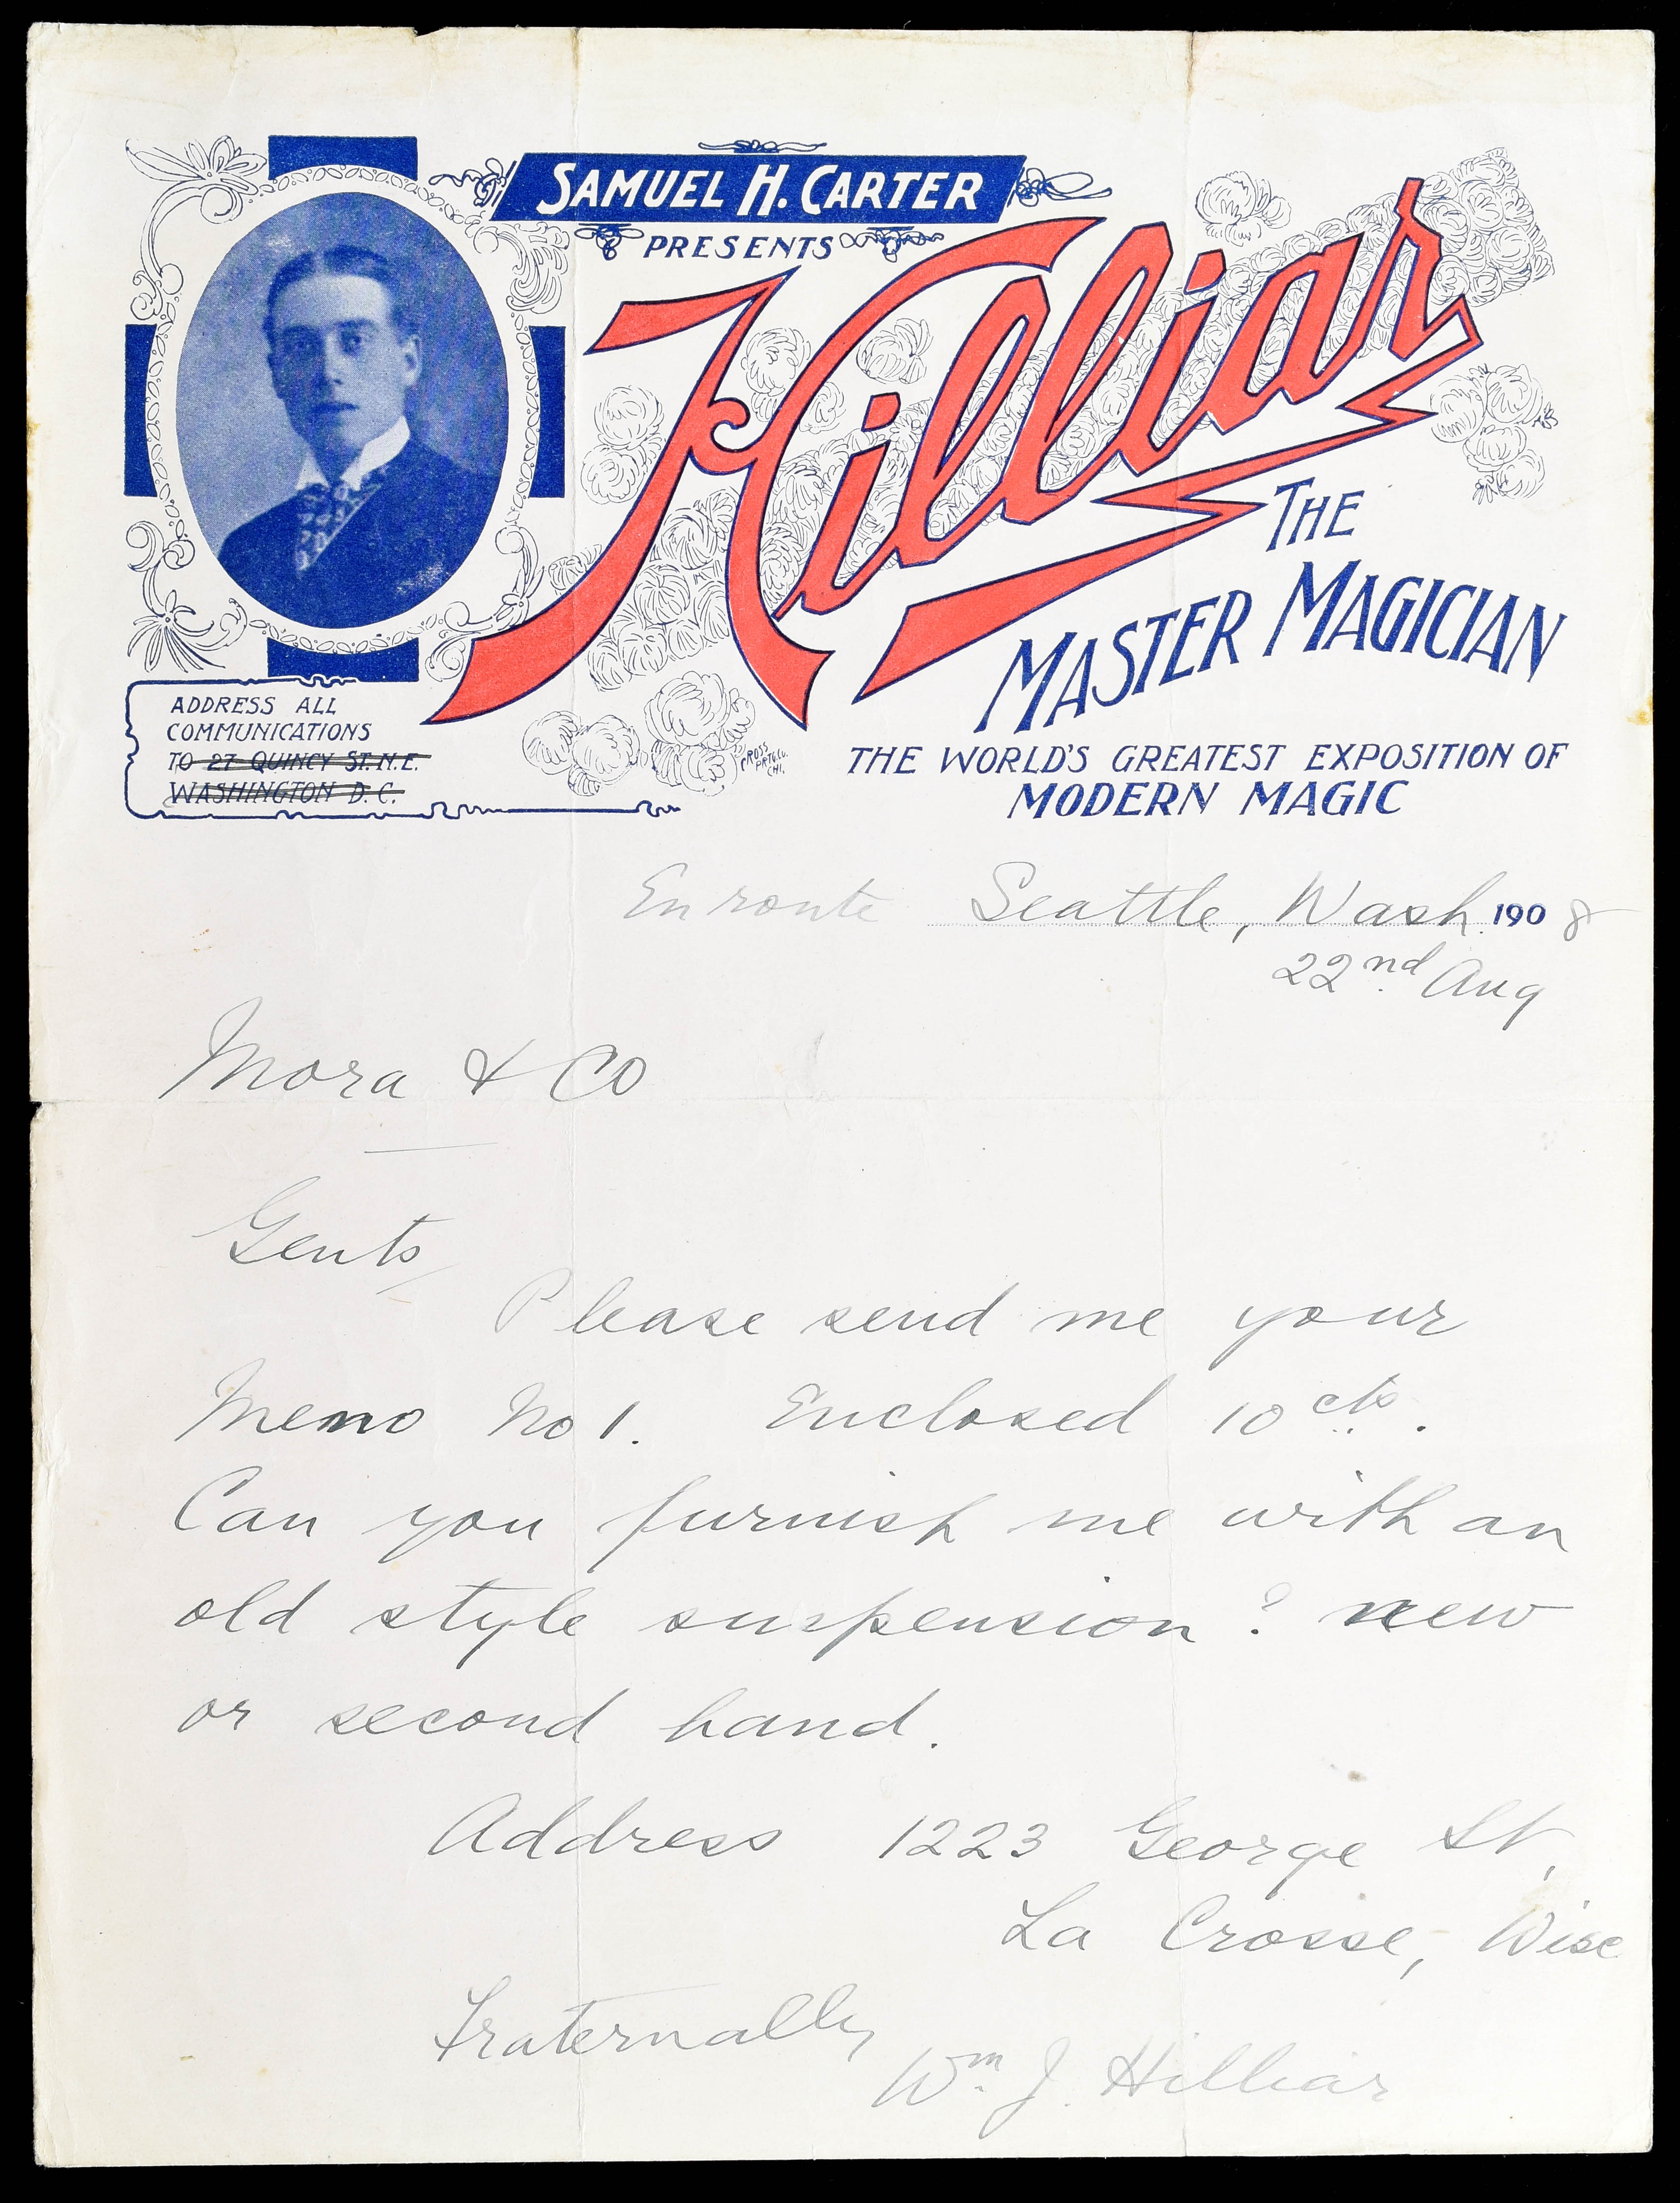 SAMUEL H. CARTER
PRESENTS
Hilliar
THE
MASTER MAGICIAN
THE WORLD'S GREATEST EXPOSITION OF
MODERN MAGIC
ADDRESS ALL
COMMUNICATIONS
TO 27 QUINCY ST. N.E.
WASHINGTON D.C.
CROSS
PRTG. CO.
CHI.
En route Seattle, Wash. 1908
22nd Aug
Mora & Co
Gents,
Please send me your
Memo No 1. Enclosed 10 cts.
Can you furnish me with an
old style suspension? new
or second hand.
Address 1223 George St,
La Crosse, Wisc
Fraternally
Wm. J. Hilliar